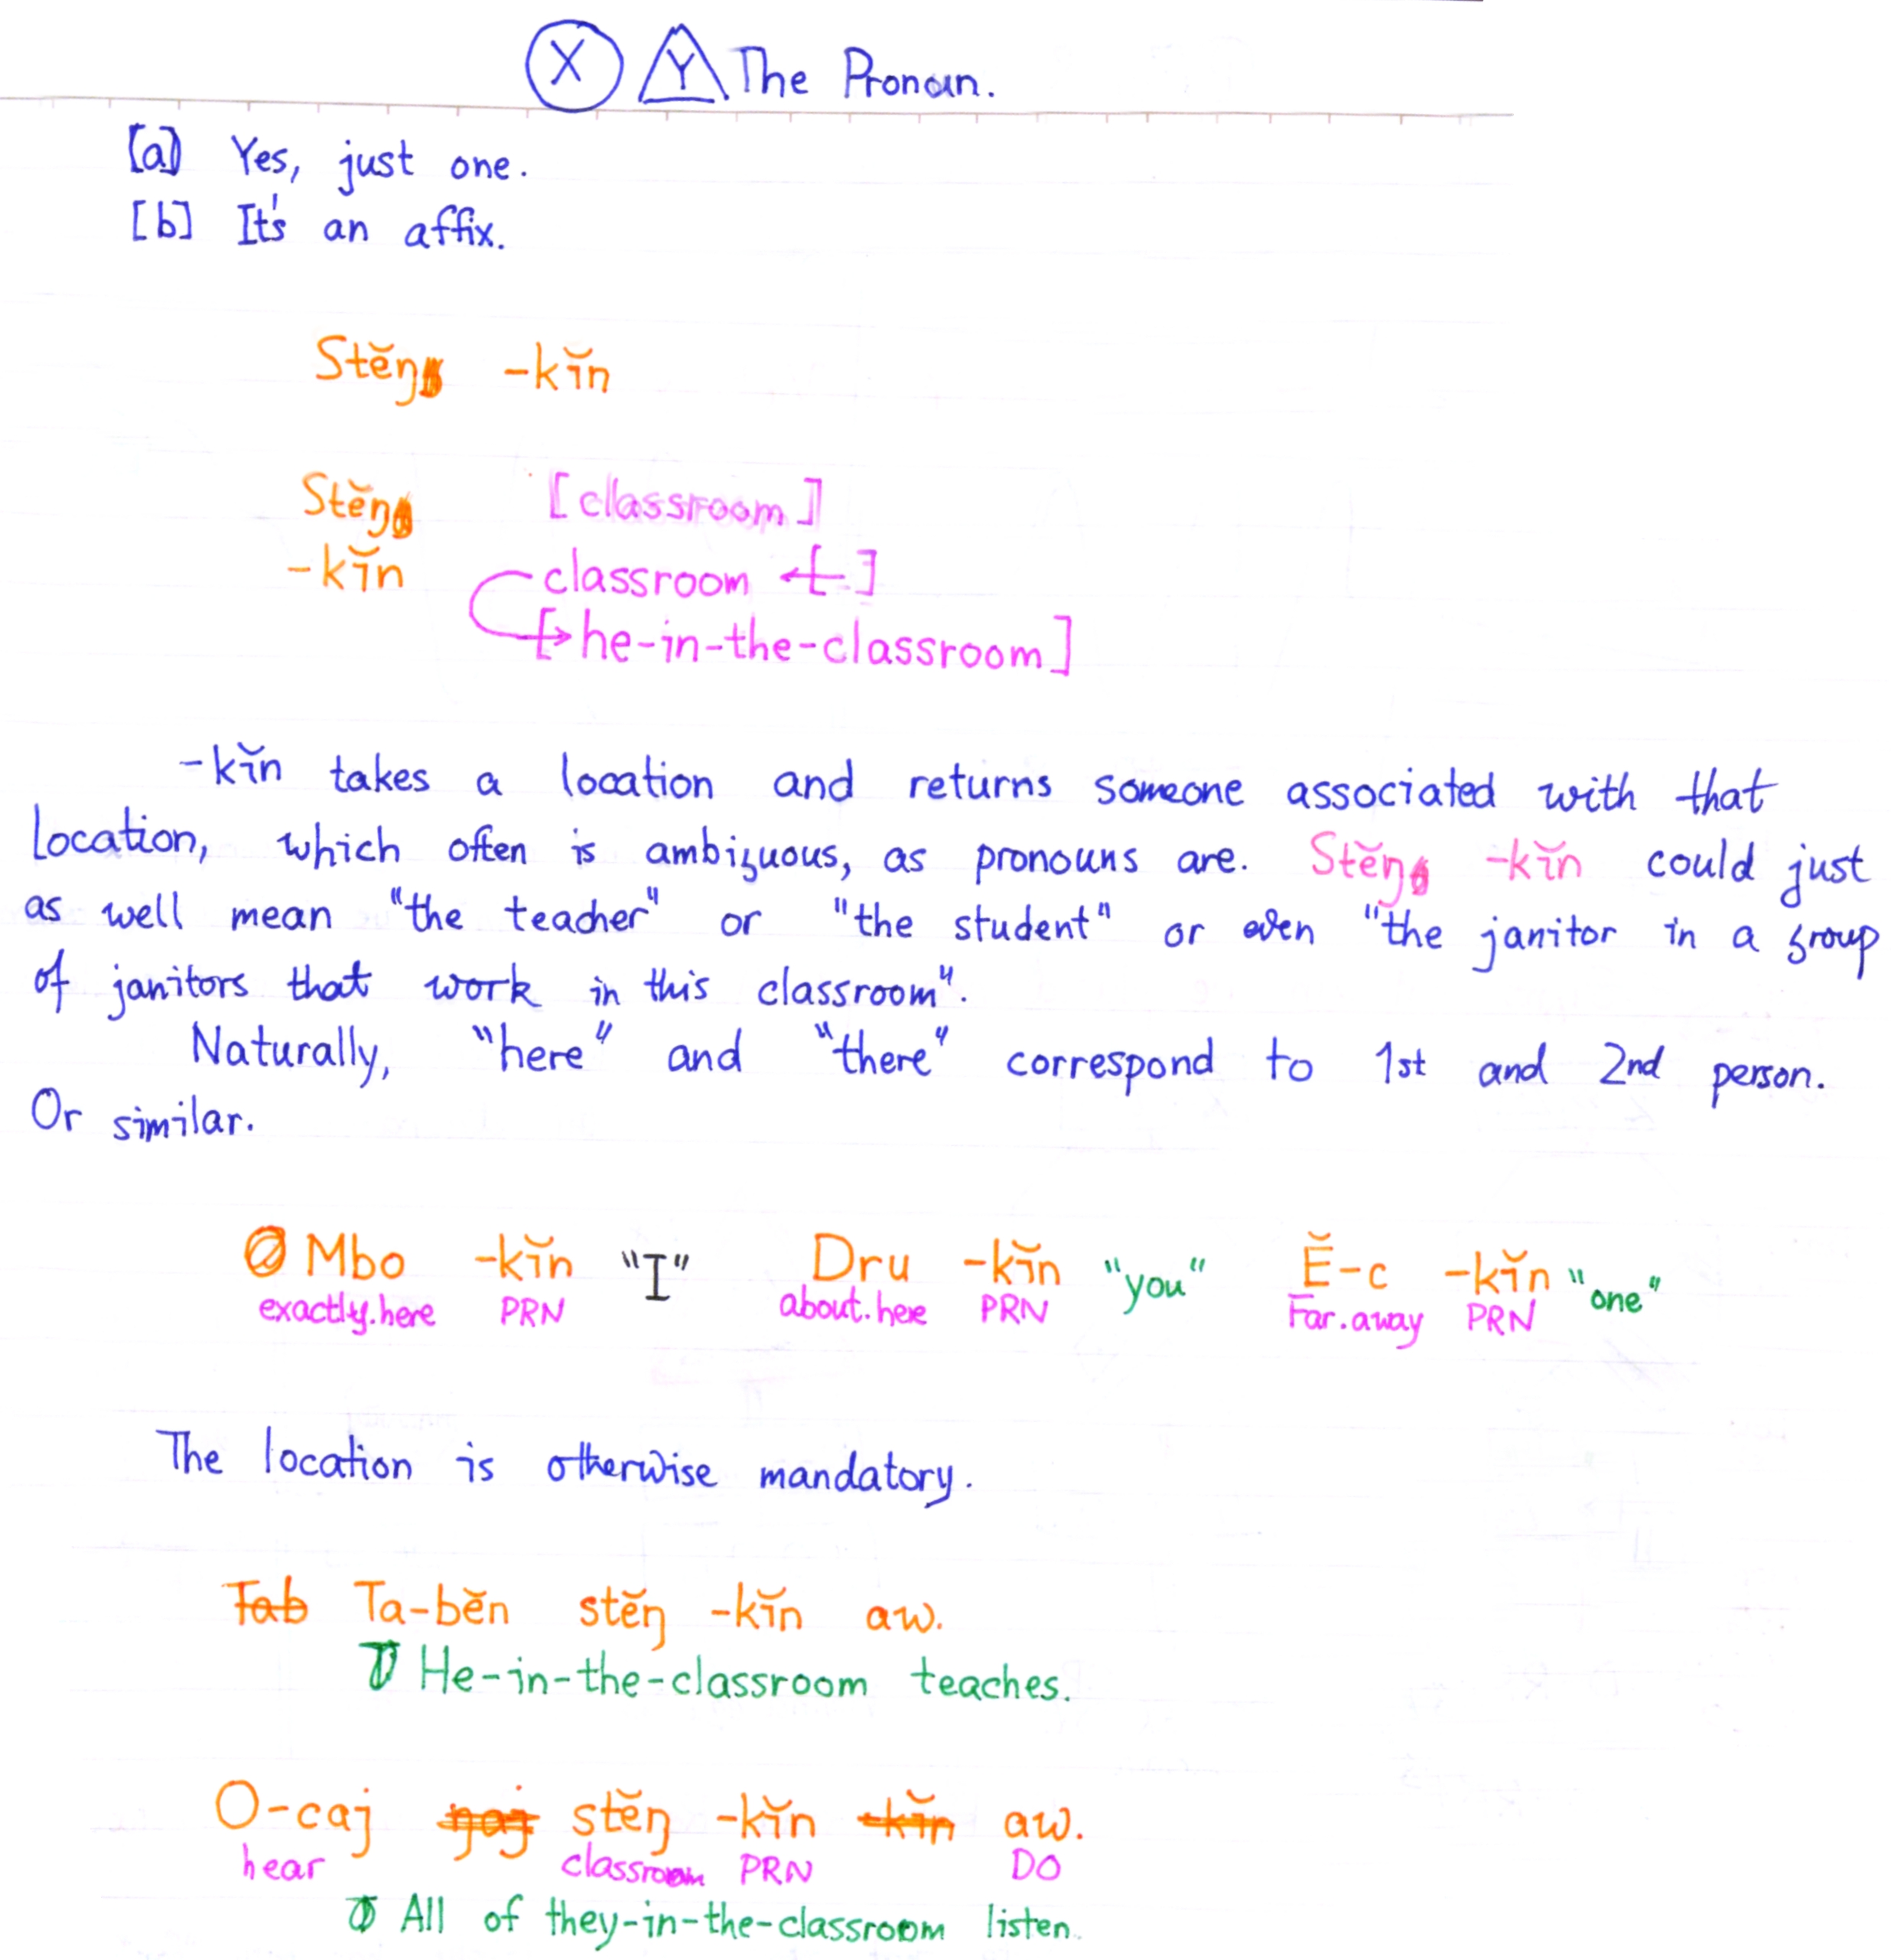 X Y The Pronoun.
[a] Yes, just one.
[b] It's an affix.
Stĕŋ -kĭn
Stĕŋ [classroom]
-kĭn classroom ←[ ]
[→he-in-the-classroom]
-kĭn takes a location and returns someone associated with that
location, which often is ambiguous, as pronouns are. Stĕŋ -kĭn could just
as well mean "the teacher" or "the student" or even "the janitor in a group
of janitors that work in this classroom".
Naturally, "here" and "there" correspond to 1st and 2nd person.
Or similar.
Mbo -kĭn "I" Dru -kĭn "you" Ĕ-c -kĭn "one"
exactly.here PRN about.here PRN Far.away PRN
The location is otherwise mandatory.
Tab Ta-bĕn stĕŋ -kĭn aw.
He-in-the-classroom teaches.
O-caj ŋaj stĕŋ -kĭn -kĭn aw.
hear classroom PRN DO
All of they-in-the-classroom listen.